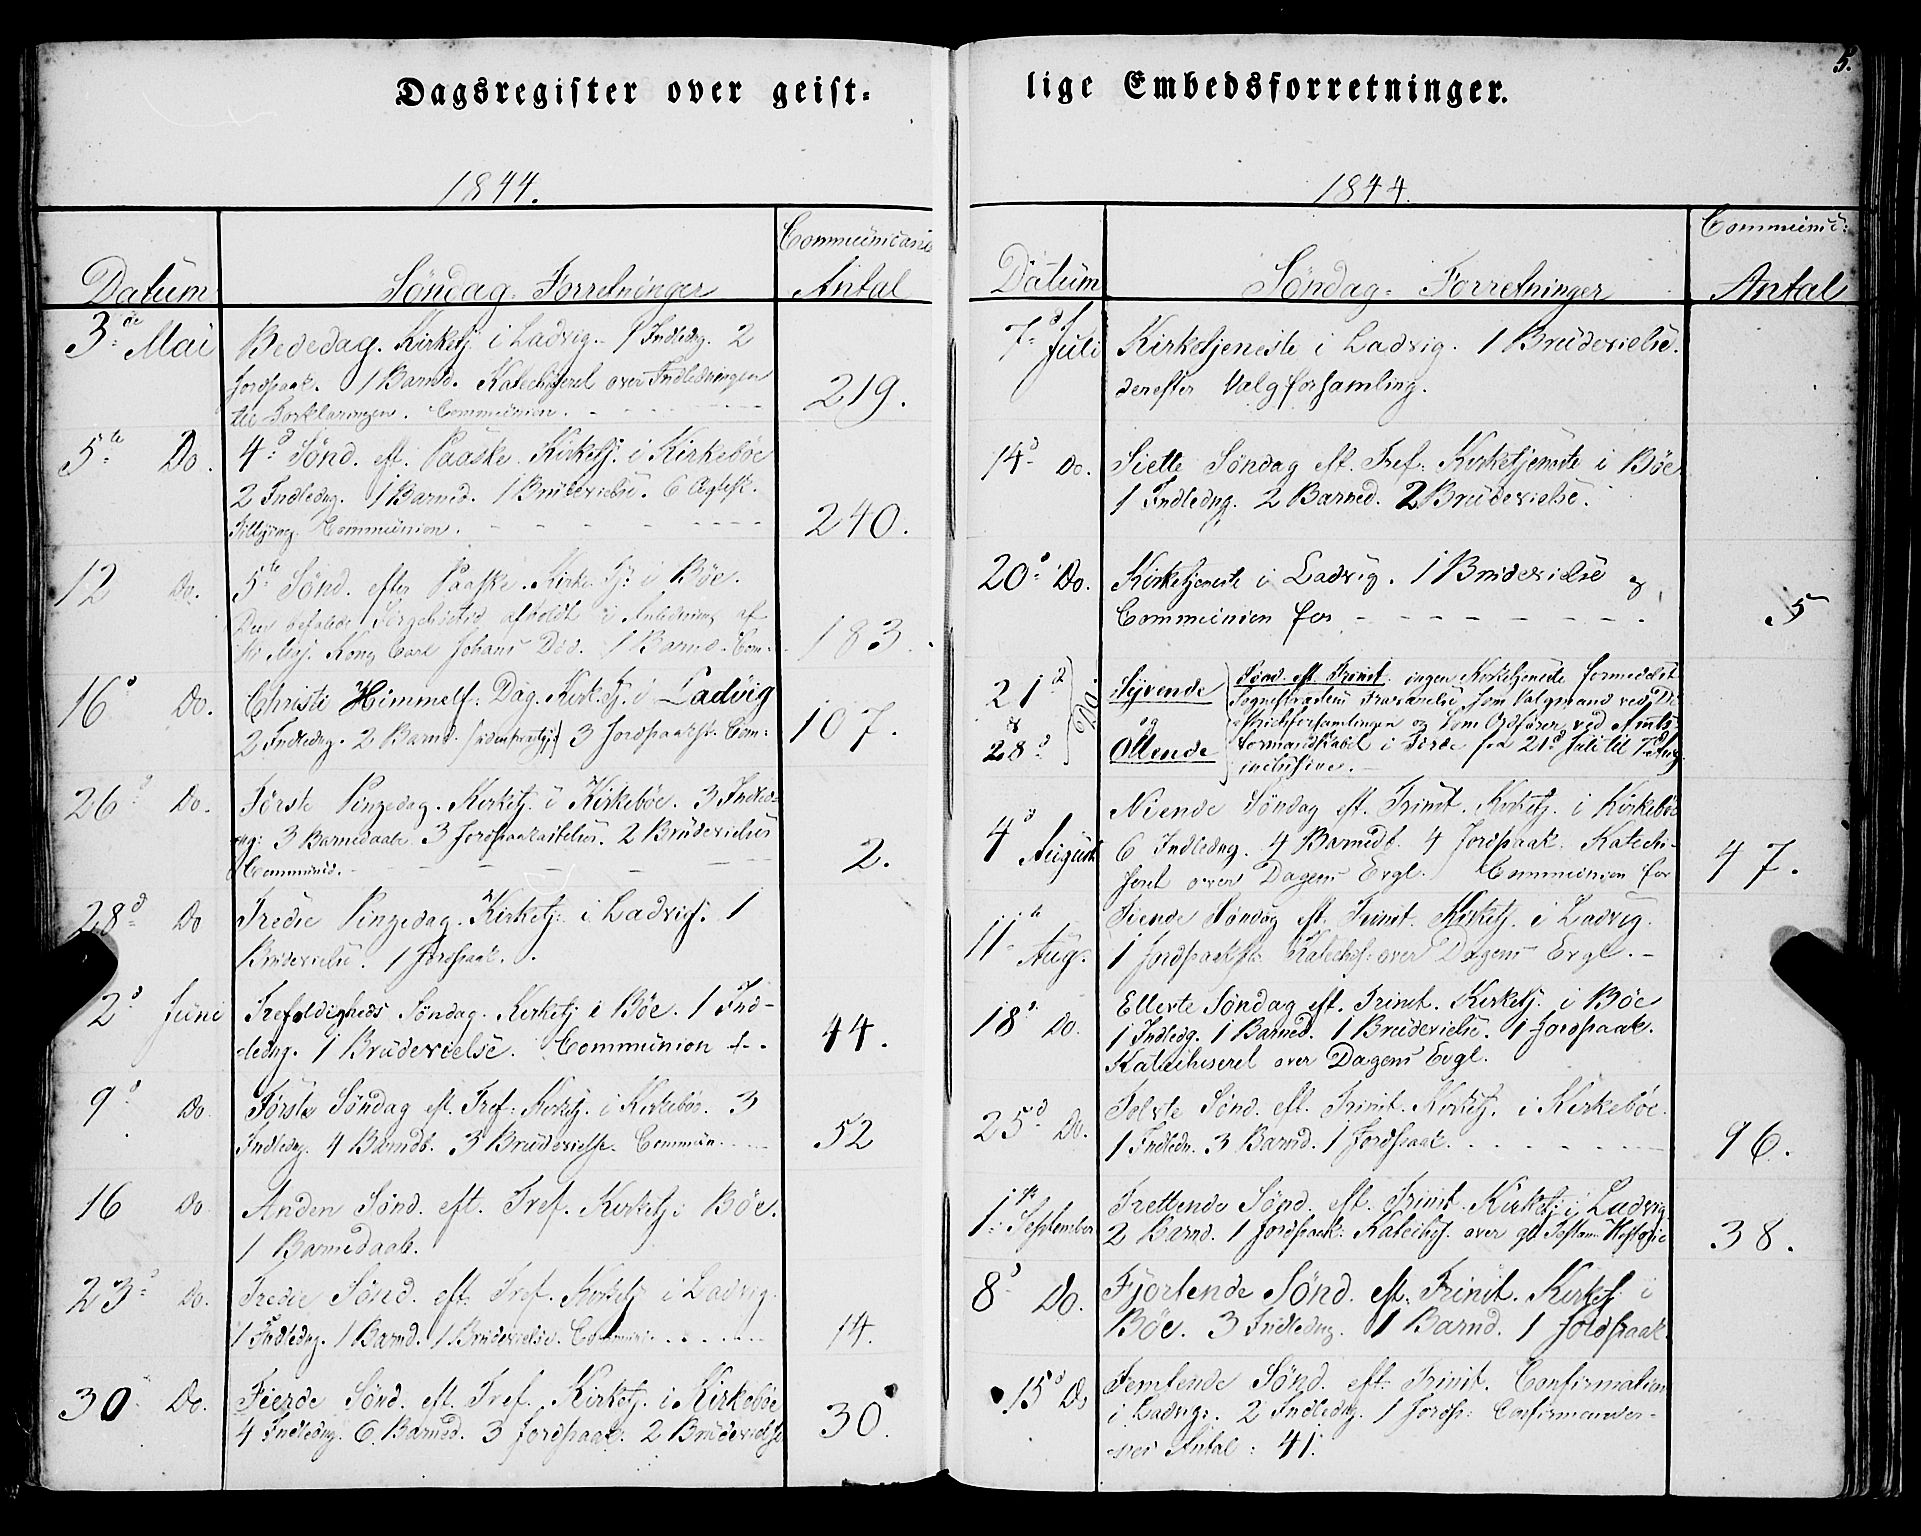 5.
Dagsregister over geist=
1844.
Datum
Søndag. Forretninger
Communicant
Antal
3de Mai
Bededag. Kirketj. i Ladvig. 1 Indledng. 2
Jordpaak. 1 Barnd. Katechiseret over Indledningen
til Forklaringen. Communion. - - - -
219.
5te Do.
4d Sønd. eft. Paaske. Kirketj. i Kirkebøe
2 Indledng. 1 Barned. 1 Brudevielse. 6 Ægtesk.
Tillysng. Communion. - - - -
240.
12 Do.
5te Sønd. efter Paaske. Kirke Tj: i Bøe.
Den befalede Sørgehøitid afholdt i Anledning af
Hs Maj. Kong Carl Johans Død. 1 Barnd. Com:
183.
16d Do.
Christi Himmelf. Dag. Kirketj. i Ladvig
2 Indledng. 2 Barnd. 3 Jordpaakst. Com:
107.
26d Do.
Første Pinzedag. Kirketj. i Kirkebøe. 3 Indled=
ng: 3 Barnedaab. 3 Jordpaakastelser. 2 Brudevielser
Communid. - - - -
2.
28d Do
Tredie Pinzedag. Kirketj: i Ladvig. 1
Brudevielse. 1 Jordpaak.
2d Juni
Trefoldigheds Søndag. Kirketj. i Bøe. 1 Ind-
ledng. 1 Brudevielse. Communion
44.
9d Do.
Første Søndag eft. Tref: Kirketj. i Kirkebøe. 3
Indledng. 4 Barndb. 3 Brudevielse. Commun. - -
52
16 Do
Anden Sønd. eft. Tref. Kirketj: Bøe.
1 Barnedaab.
23d Do.
Tredie Sønd. eft. Tref. Kirketj. i Ladvig.
1 Indledng. 1 Barnd. 1 Brudevielse. Commun: . . . .
14.
30 Do.
Fierde Sønd. eft. Tref. Kirketj. i Kirkebøe
4 Indledng. 6 Barned. 3 Jordpaak. 2 Brudevielse
30.
lige Embedsforretninger.
1844.
Datum
Søndag. Forretninger
Communic:
Antal
7d Juli
Kirketjeneste i Ladvig. 1 Brudevielse.
derefter Valgforsamling.
14d Do.
Siette Søndag eft. Tref. Kirketjeneste i Bøe
1 Indledng. 2 Barned. 2 Brudevielse.
20d Do.
Kirketjeneste i Ladvig. 1 Brudevielse og
Communion for - - - -
5
21d & 28d Do.
Syvende og Ottende
Sønd. eft Trinit. ingen Kirketjeneste formedelst
Sognepræstens Fraværelse som Valgmand ved Di
striktsforsamlingen og som Ordfører ved Amts-
formandskabet i Førde fra 21d Juli til 7d Aug.
inclusive. -
4d August
Niende Søndag eft. Trinit. Kirketj. i Kirkebøe
6 Indledng. 4 Barnedb. 4 Jordpaak. Katechi-
seret over Dagens Evgl. Communion for
47.
11te Aug.
Tiende Søndag eft. Trinit. Kirketj. i Ladvig.
1 Jordpaakst: Katechis: over Dagens Evgl. -
18d Do.
Ellevte Søndag eft. Trinit. Kirketj. i Bøe
1 Indledg. 1 Barned. 1 Brudevielse. 1 Jordpaak.
Katechiseret over Dagens Evgl.
25d Do.
Tolvte Sønd. eft. Trinit. Kirketj. i Kirkebøe.
1 Indledn. 3 Barnd. 1 Jordpaak. - - - -
96.
1ste September
Trettende Sønd. eft. Trinit. Kirketj: i Ladvig
2 Barnd. 1 Jordpaak: Katechis. over gl. Testam: Historie
38.
8d Do.
Fjortende Sønd. eft. Trinit. Kirketj. i
Bøe. 3 Indledng. 1 Barnd. 1 Jordpaak.
15d Do
Femtende Sønd. eft. Trinit. Confirmation
i Ladvig. 2 Indledng. 1 Jordp: Confirmander-
nes Antal: 41.